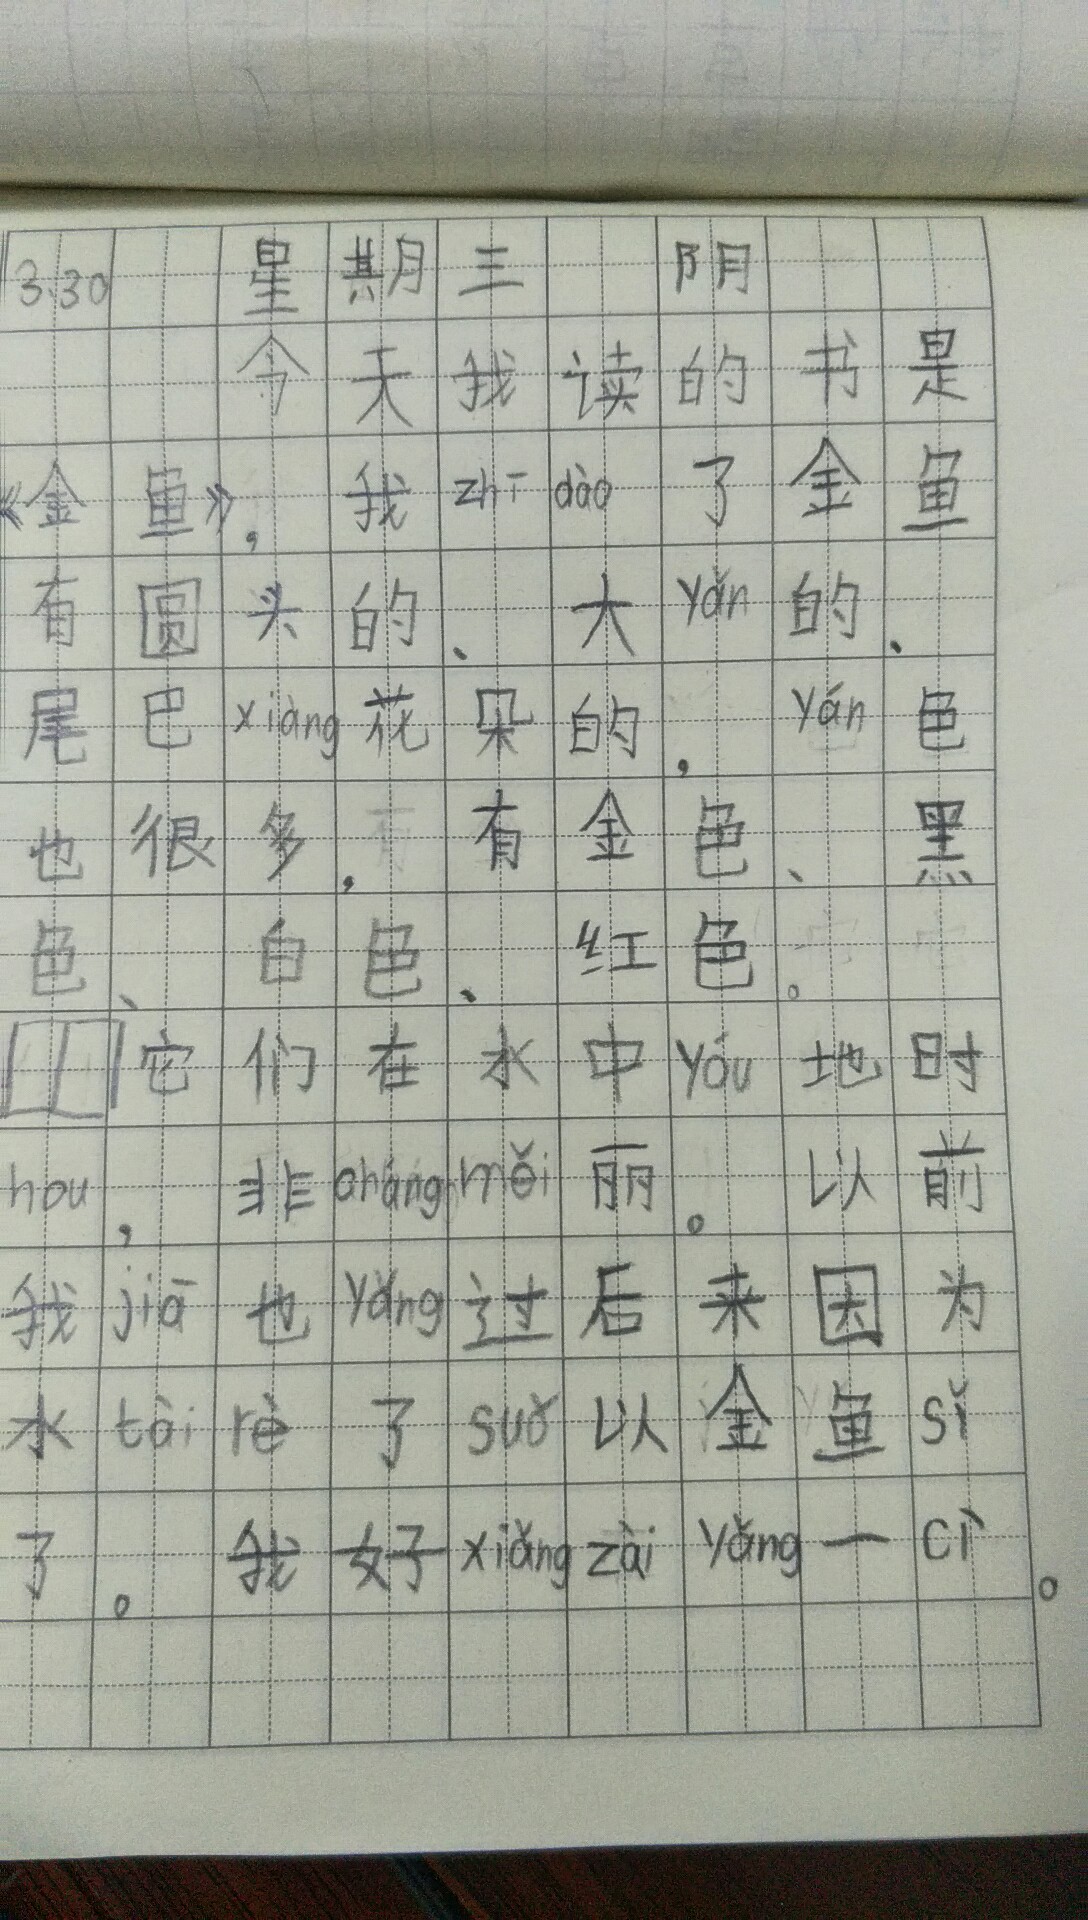 3.30 星期三 阴
今天我读的书是
《金鱼》，我zhī dào了金鱼
有圆头的、大yǎn的、
尾巴xiàng花朵的，yán色
也很多，有金色、黑
色、白色、红色。
它们在水中yóu地时
hou，非cháng měi丽。以前
我jiā也yǎng过后来因为
水tài rè了suǒ以金鱼sǐ
了。我好xiǎng zài yǎng一cì。